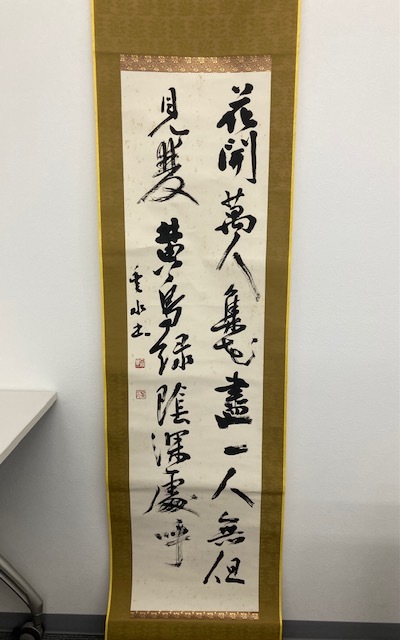 花開萬人集花盡一人無但
見雙黄鳥緑陰深處呼
水書